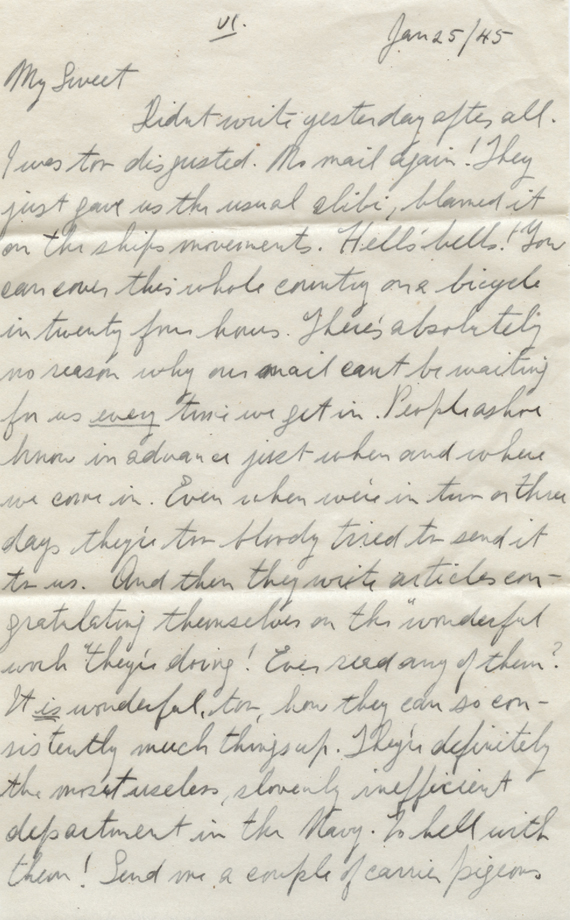 VI.
Jan 25/45
My Sweet
Didnt write yesterday after all.
I was too disgusted. No mail again! They
just gave us the usual alibi, blamed it
on the ships movements. Hells' bells! You
can cover this whole country on a bicycle
in twenty four hours. There's absolutely
no reason why our mail can't be waiting
for us every time we get in. People ashore
know in advance just when and where
we come in. Even when we're in two or three
days they're too bloody tired to send it
to us. And then they write articles con-
gratulating themselves on the "wonderful
work" they're doing! Ever read any of them?
It is wonderful, too, how they can so con-
sistently much things up. They're definitely
the most useless, slovenly inefficient
department in the Navy. To hell with
them! Send me a couple of carrier pigeons